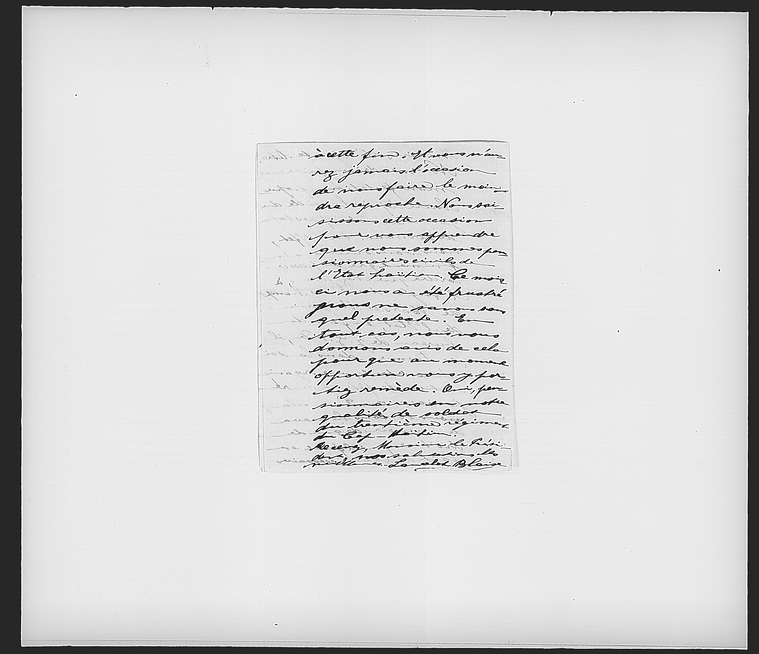 à cette fin. Et vous n'au-
rez jamais l'occasion
de nous faire le moin-
dre reproche. Nous sai-
sissons cette occasion
pour vous apprendre
que nous sommes pen-
sionnaires civils de
l'Etat haïtien. Ce mois
ci nous a été frustré
nous ne savons sous
quel preteste. En
tout cas, nous vous
donnons avis de cela
pour que au moment
opportun vous y por-
tiez remède. Oui, pen-
sionnaires en notre
qualité de soldat
du trentième régiment
du Cap Haïtien.
Recevez, Monsieur le Prési-
dent, nos salutations les
Blaise